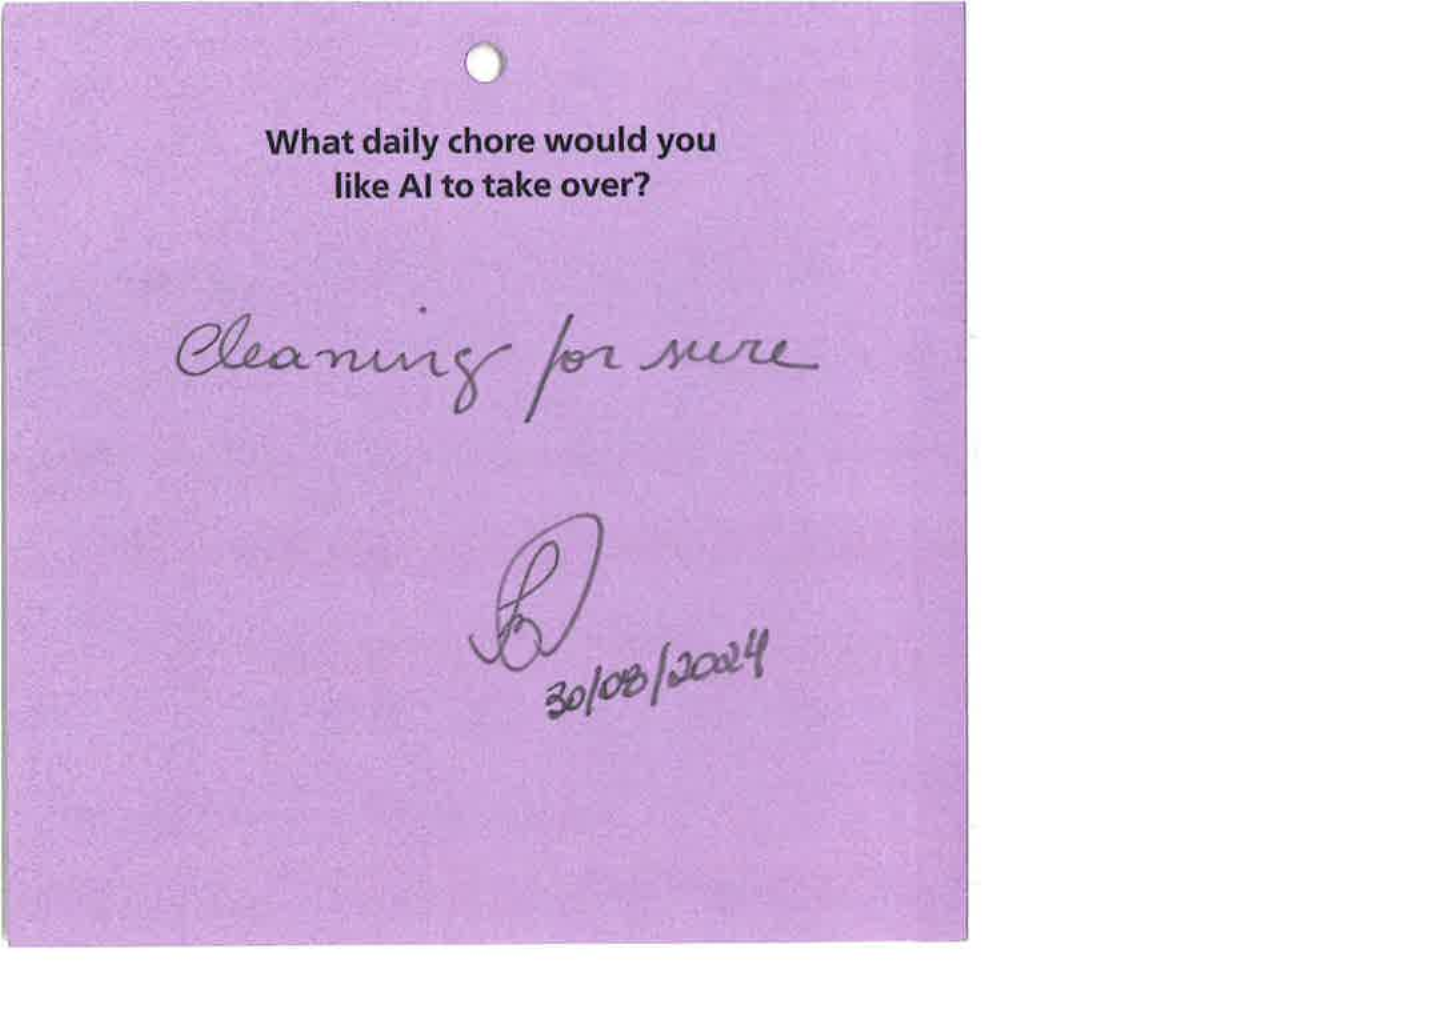 What daily chore would you
like AI to take over?
Cleaning for sure
30/08/2024